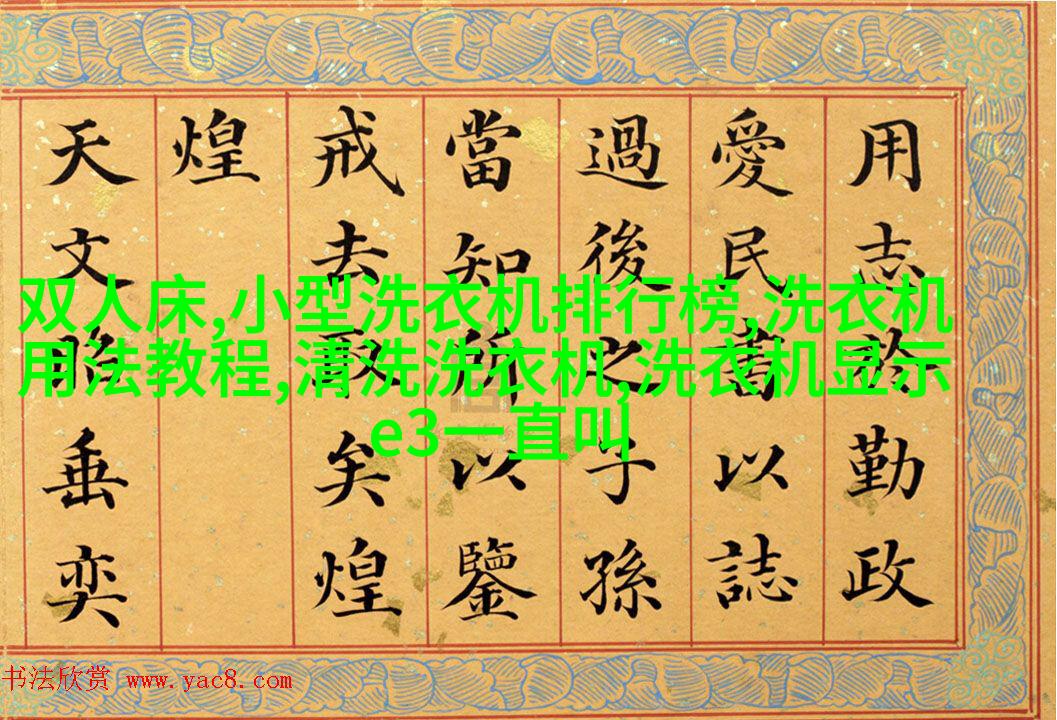 用志勤政
愛民以誌
過後之子孫
當知所以鑒
戒去取矣煌
煌
天文昭垂奕
双人床,小型洗衣机排行榜,洗衣机
用法教程,清洗洗衣机,洗衣机显示
e3一直叫
书法欣赏 www.yac8.com